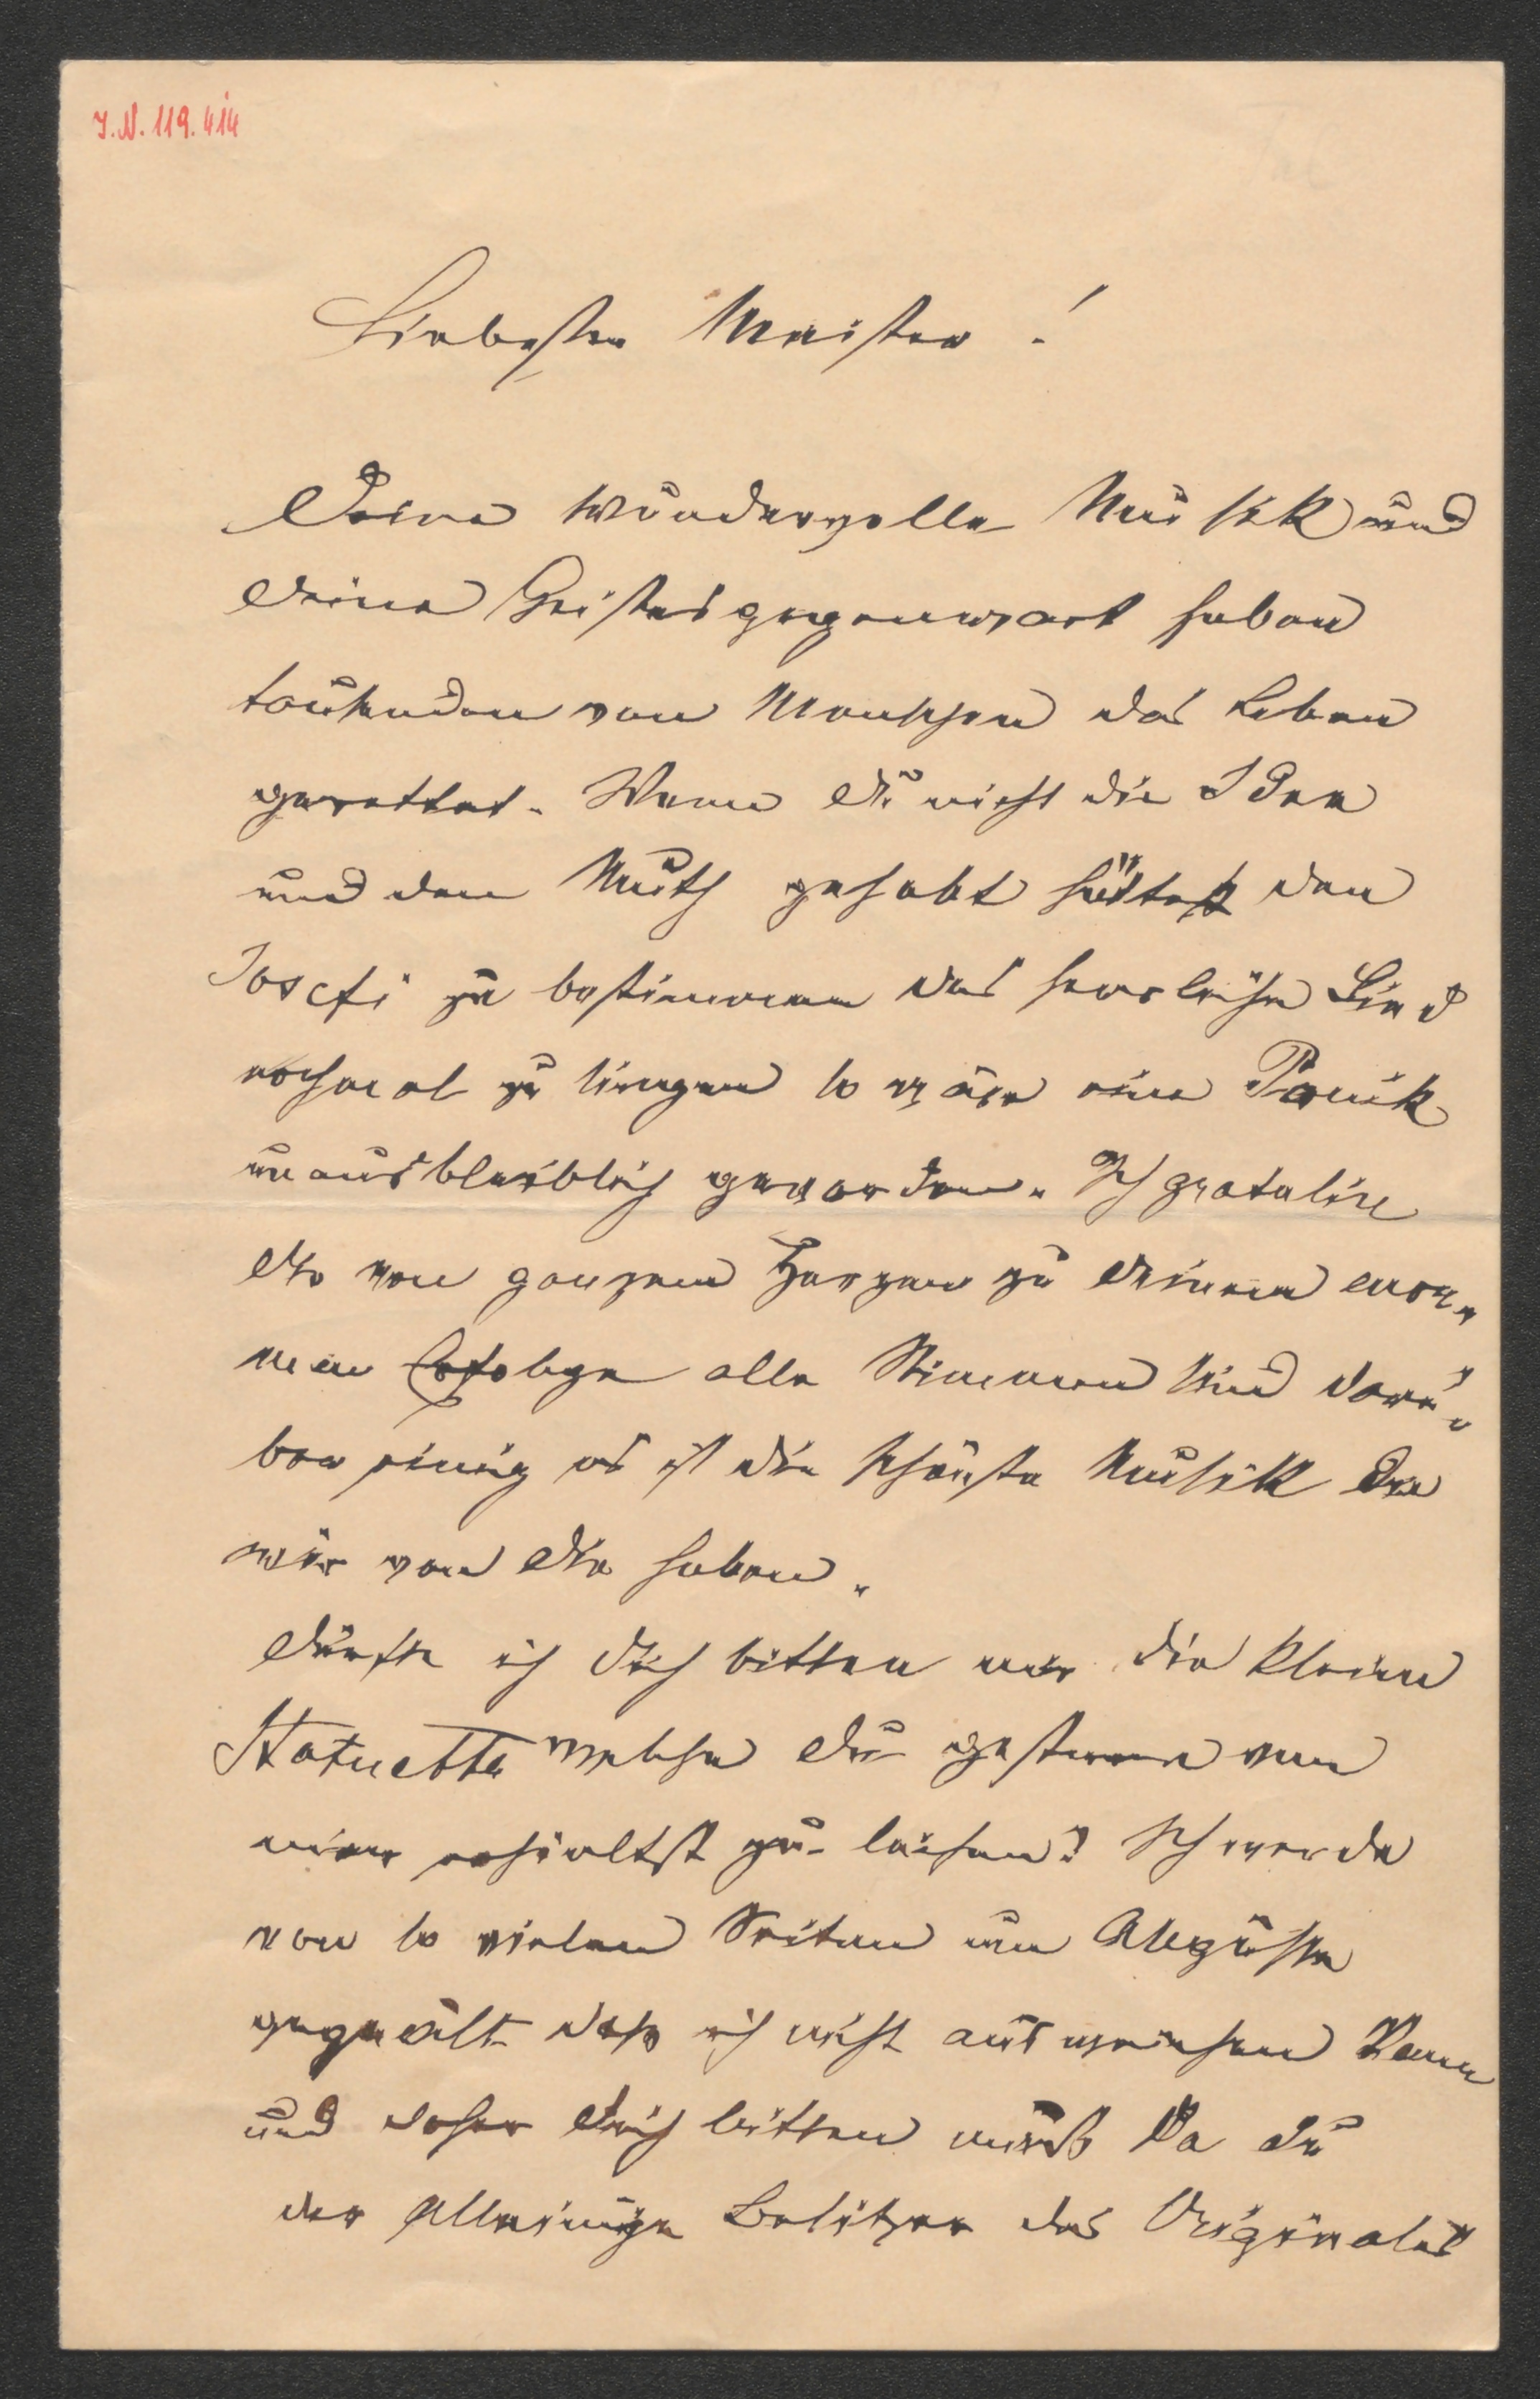 I.N. 119.414
Liebster Meister!
Deine wundervolle Musik und
Deine Geistesgegenwart haben
tausenden von Menschen das Leben
gerettet. Wenn Du nicht die Idee
und den Muth gehabt hättest den
Josefi zu bestimmen das herrliche Lied
nochmal zu singen so wäre eine Panik
unausbleiblich geworden. Ich gratulire
Dir von ganzem Herzen zu Deinem enor-
men Erfolge alle Stimmen sind darü-
ber einig es ist die schönste Musik die
wir von Dir haben.
Dürfte ich Dich bitten mir die kleine
Statuette welche Du gestern von
mir erhieltst zu leihen? Ich werde
von so vielen Seiten um Abgüsse
gequält daß ich nicht ausweichen kann
und daher Dich bitten muß da Du
der alleinige Besitzer des Originales